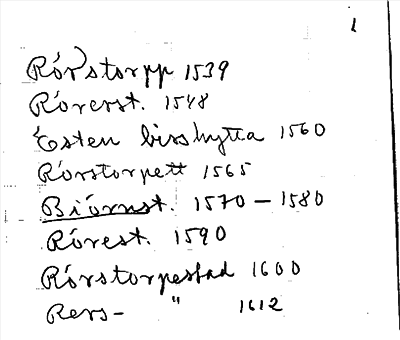 1
Rörstorpp 1539
Rörerst. 1548
Esten birshytta 1560
Rörstorpett 1565
Biörnst. 1570 - 1580
Rörest. 1590
Rörstorpestad 1600
Rers- " 1612